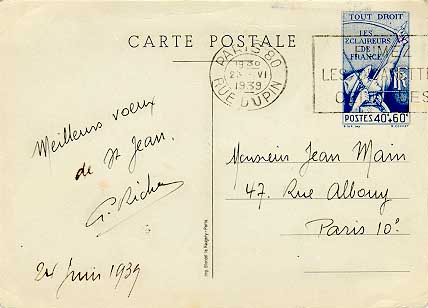 CARTE POSTALE
TOUT DROIT
LES
ECLAIREURS
DE
FRANCE
POSTES 40c+60c
PARIS 80
1930
23 VI
1939
RUE DUPIN
LES
Meilleurs voeux
de St Jean.
24 Juin 1939
Monsieur Jean Main
47. Rue Albouy
Paris 10e